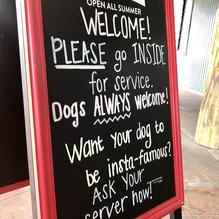 OPEN ALL SUMMER
WELCOME!
PLEASE go INSIDE
for service.
Dogs ALWAYS welcome!
Want your dog to
be insta-famous?
Ask your
server how!